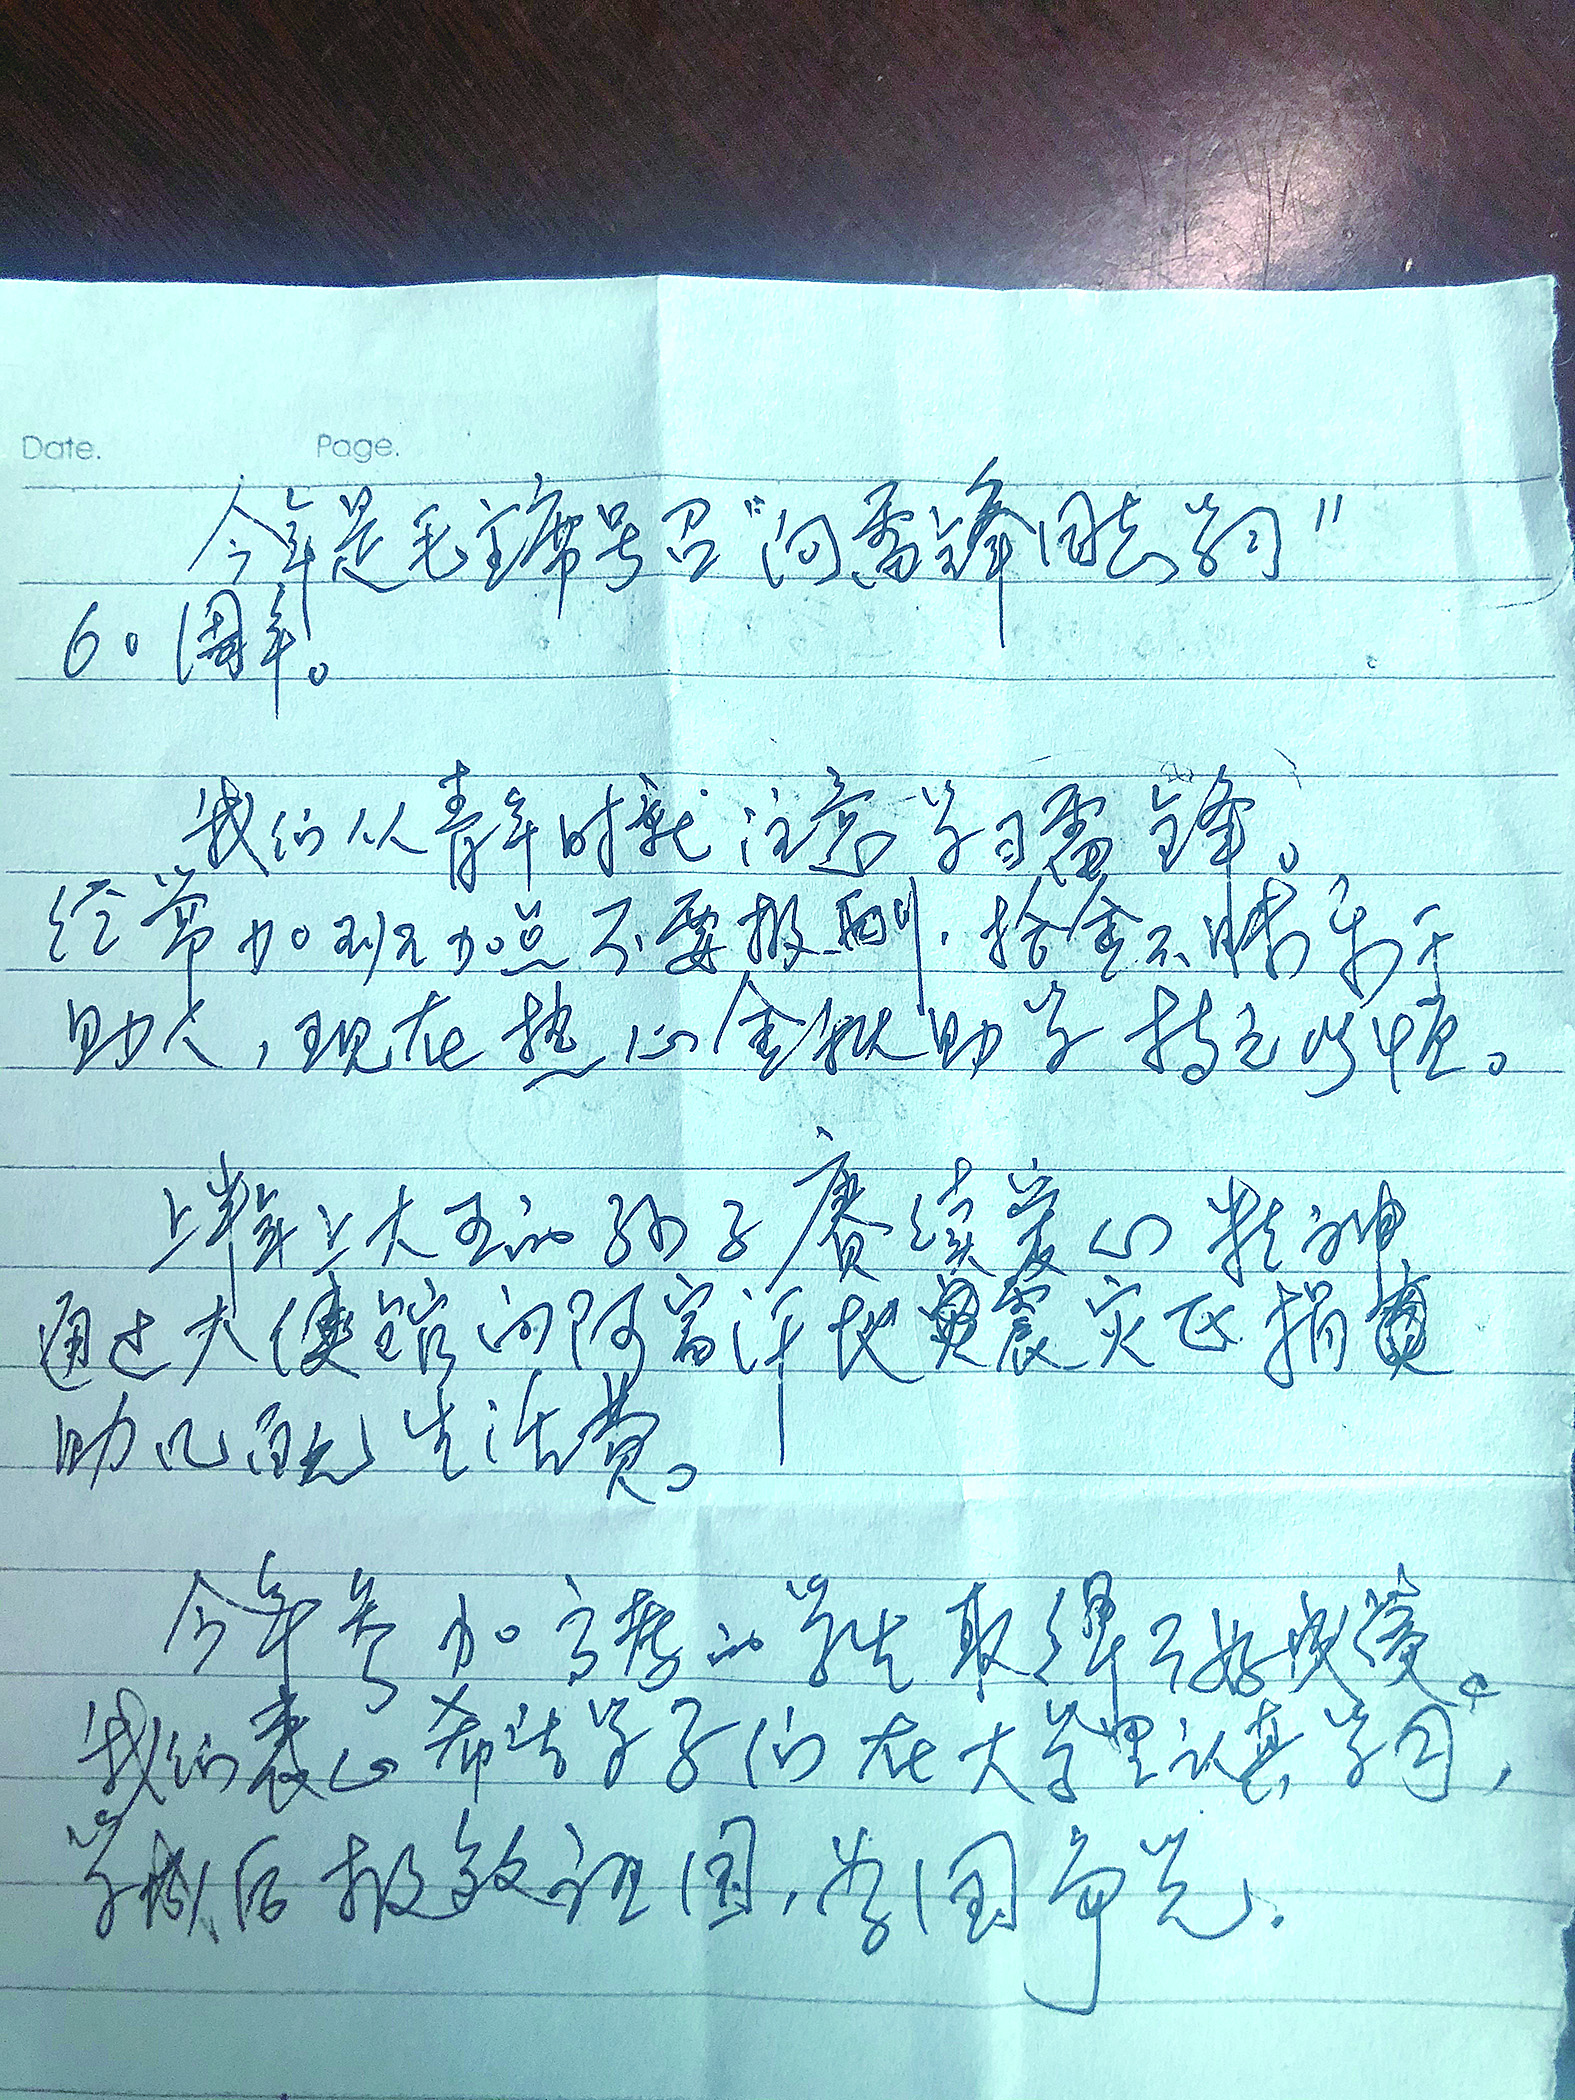 Date. Page.
今年是毛主席号召“向雷锋同志学习”
60周年。
我们从青年时就注意学习雷锋。
经常加班加点不要报酬，拾金不昧乐于
助人，现在热心金秋助学扶老
上半年上大五的孙子赓续爱心精神
通过大使馆向阿富汗地震灾区捐
助几百元生活费。
今年参加高考的学生取得了好成绩。
我们衷心希望学子们在大学里认真学习，
学成后报效祖国，为国争光。